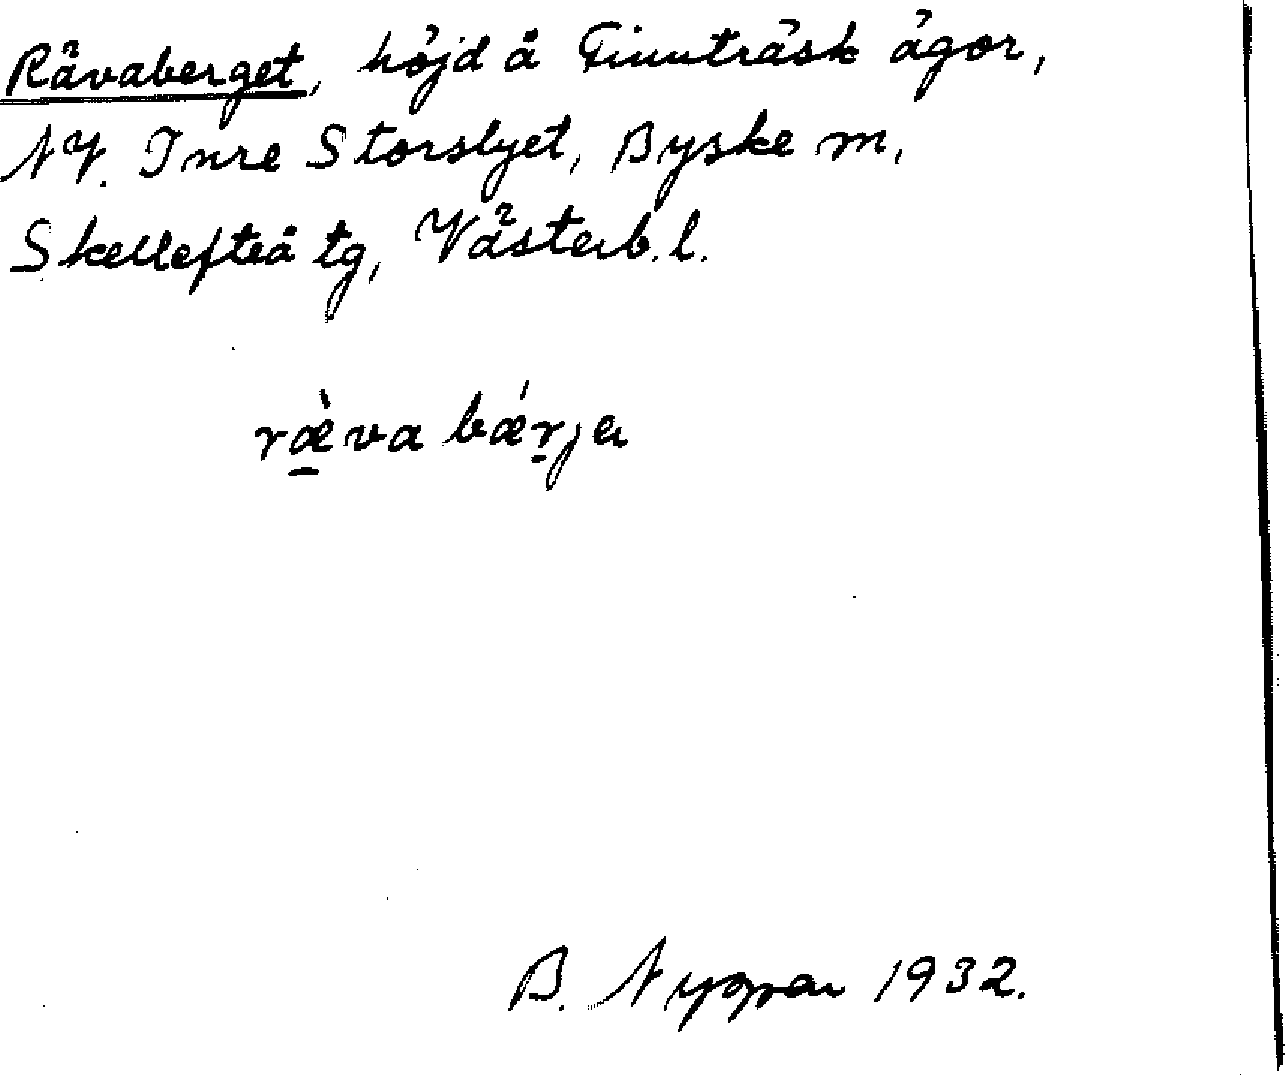 Rävaberget, höjd å Finnträsk ägor,
NV. Inre Storslyet, Byske sn,
Skellefteå tg, Västerb. l.
ræ̱̀va bǽṟja
B. Nygren 1932.